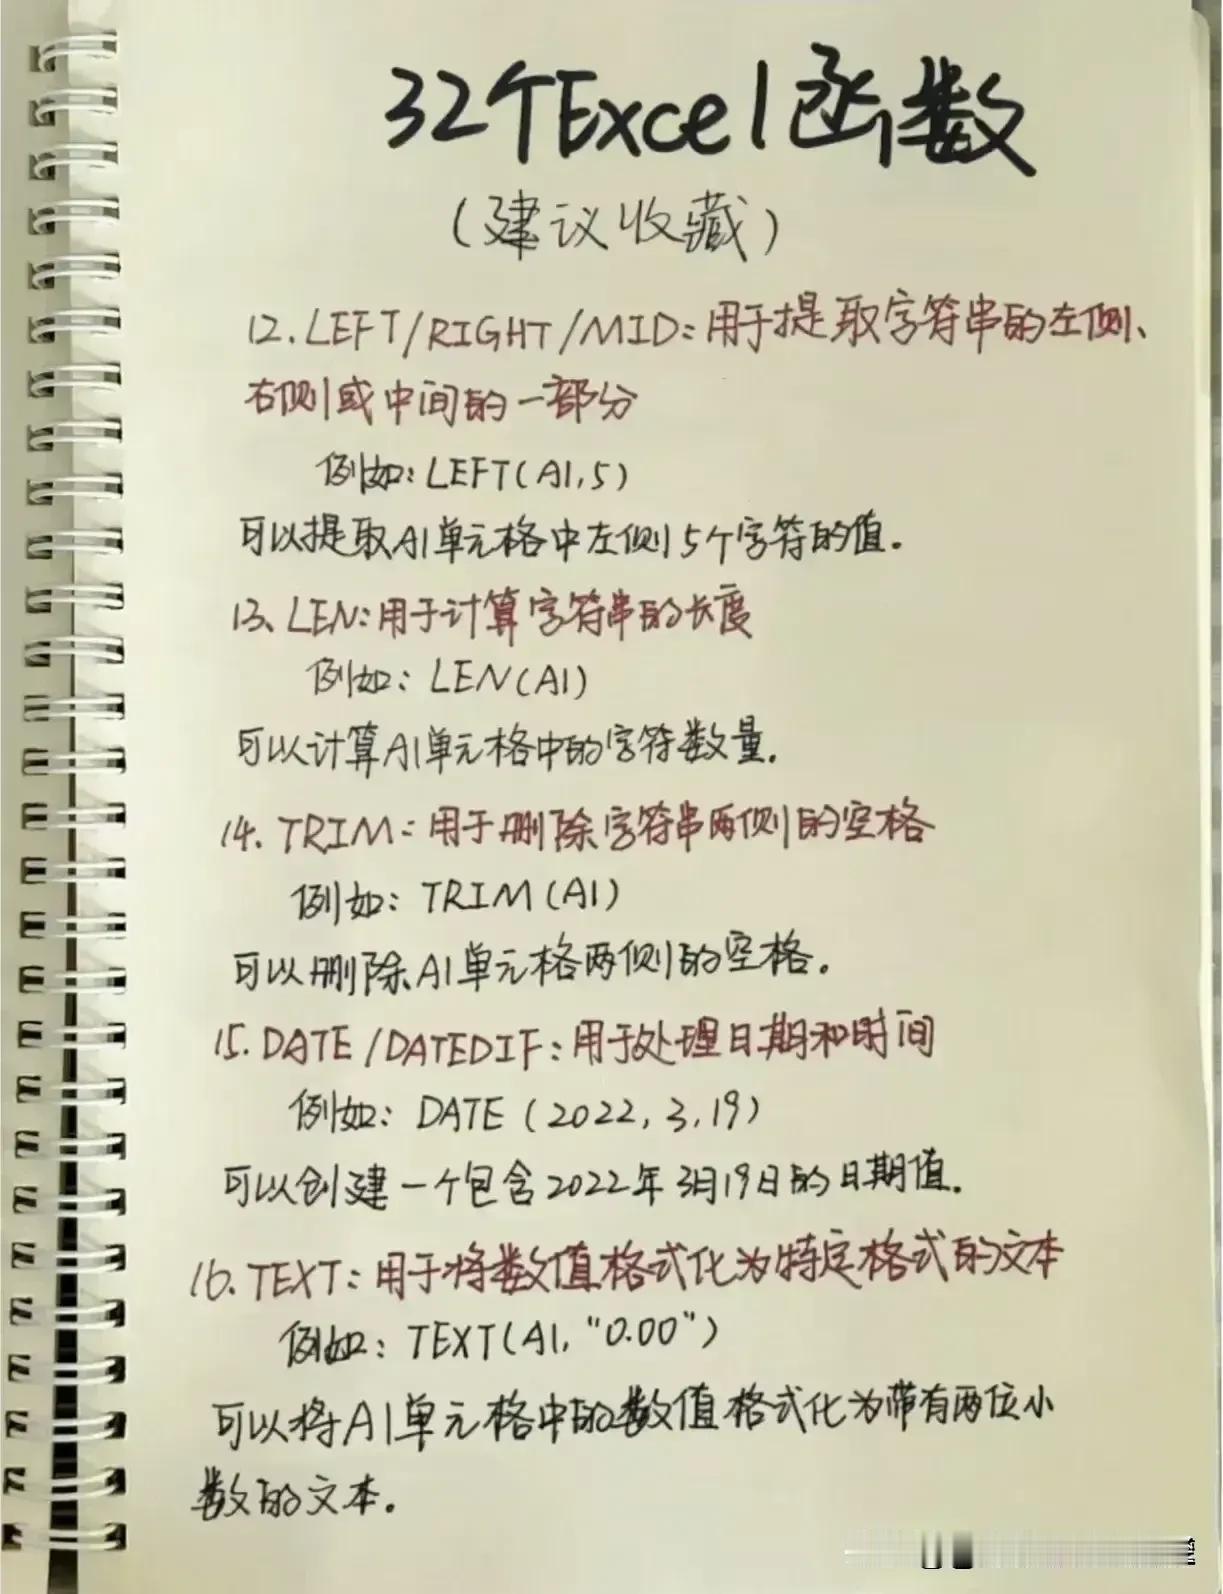 32个Excel函数
(建议收藏)
12.LEFT/RIGHT/MID:用于提取字符串的左侧、
右侧或中间的一部分
例如:LEFT(A1,5)
可以提取A1单元格中左侧5个字符的值.
13、LEN:用于计算字符串的长度
例如:LEN(A1)
可以计算A1单元格中的字符数量.
14.TRIM:用于删除字符串两侧的空格
例如:TRIM(A1)
可以删除A1单元格两侧的空格.
15.DATE/DATEDIF:用于处理日期和时间
例如:DATE(2022,3,19)
可以创建一个包含2022年3月19日的日期值.
16.TEXT:用于将数值格式化为特定格式的文本
例如:TEXT(A1,"0.00")
可以将A1单元格中的数值格式化为带有两位小
数的文本.